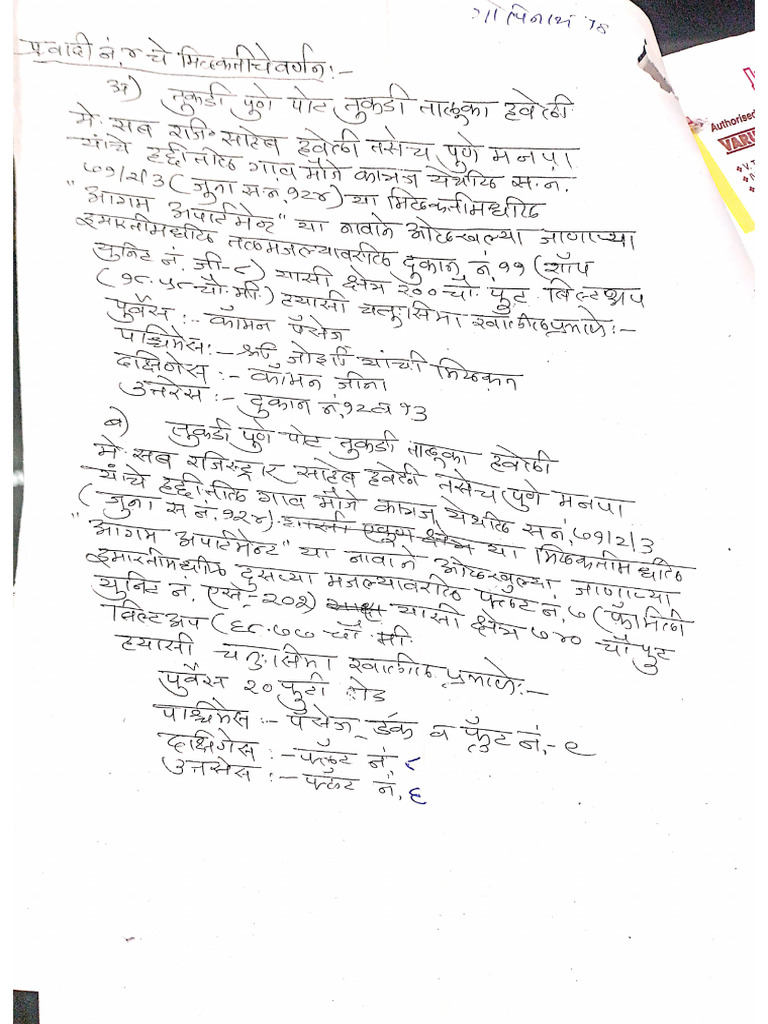 गोपिनाथ
प्रवादी नं, ४ चे मिळकतीचे वर्णन :-
अ) तुकडी पुणे पोट तुकडी तालूका हवेली
मे. सब रजि. साहेब हवेली तसेच पुणे मनपा
यांचे हद्दीतील गाव मौजे कात्रज येथील स.नं.
७१/२/३ ( जूना स.नं. १२४) या मिळकतीमधील
"आगम अपार्टमेन्ट" या नावाने ओळखल्या जाणाऱ्या
इमारतीमधील तळमजल्यावरील दुकान नं, ११ (शॉप
युनिट नं. जी-८) यासी क्षेत्र २०० चौ. फूट बिल्टअप
(१८.५८ चौ.मी.) ह्यासी चतुःसिमा खालीलप्रमाणे :-
पुर्वेस :- कॉमन पॅसेज
पश्चिमेस :- श्री जोईल यांची मिळकत
दक्षिणेस :- कॉमन जीना
उत्तरेस :- दुकान नं, १२ व १३
ब) तुकडी पुणे पोट तुकडी तालूका हवेली
मे. सब रजिस्ट्रार साहेब हवेली तसेच पुणे मनपा
यांचे हद्दीतील गाव मौजे कात्रज, येथील स नं, ७१/२/३
( जूना स नं, १२४). यासी एकूण क्षेत्र या मिळकतीमधील
"आगम अपार्टमेन्ट" या नावाने ओळखल्या जाणाऱ्या
इमारतीमधील दुसऱ्या मजल्यावरील फ्लॅट नं, ७ (फॅमिली
युनिट नं, एस-२०१) यासी क्षेत्र ७४० चौ फूट
बिल्टअप (६८.७७ चौ. मी
ह्यासी चतुःसिमा खालील प्रमाणे :-
पुर्वेस २० फूटी रोड
पश्चिमेस :- पॅसेज, डक व फ्लॅट नं,- ९
दक्षिणेस :- फ्लॅट नं, ८
उत्तरेस :- फ्लॅट नं, ६
Authorised
VARI